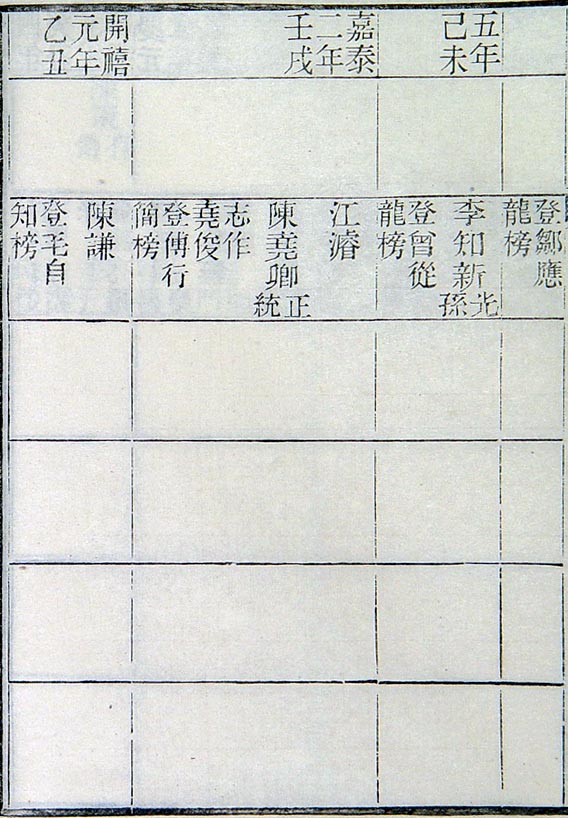 登鄒應
龍榜
五年
己未
李知新
光
孫
登曾從
龍榜
嘉泰
二年
壬戌
江濬
陳堯卿
正
統
志作
堯俊
登傅行
簡榜
開禧
元年
乙丑
陳謙
登毛自
知榜